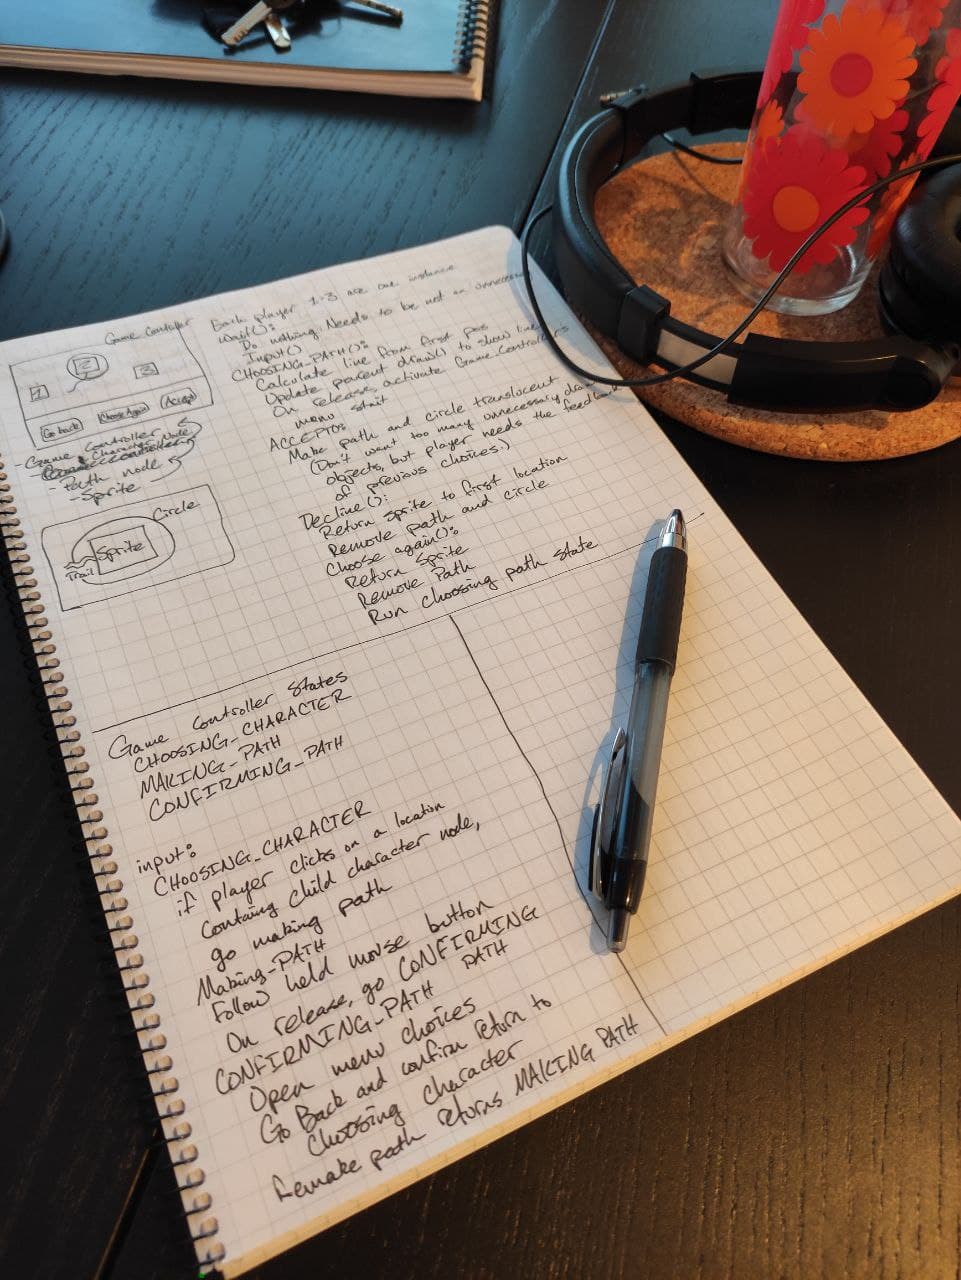 Game Controller
1
2
3
Go back
Choose Again
Accept
- Game Controller
Character Node
- Path node
- Sprite
Circle
Sprite
Trail
Each player 1-3 are one instance
Wait():
Do nothing. Needs to be not an unnecessary
Input()
CHOOSING_PATH():
Calculate line from first pos
Update parent draw() to show line
On release, activate Game Controller's
menu start
Make path and circle translucent
(Don't want too many unnecessary draw
objects, but player needs the feedback
of previous choices.)
Decline():
Return sprite to first location
Remove path and circle
Choose again():
Return Sprite
Remove Path
Run choosing path state
Game Controller States
CHOOSING_CHARACTER
MAKING_PATH
CONFIRMING_PATH
input:
CHOOSING_CHARACTER
if player clicks on a location
containg child character node,
go making path
Making-PATH
Follow held mouse button
On release, go CONFIRMING
PATH
CONFIRMING_PATH
Open menu choices
Go Back and confirm return to
Choosing character
Remake path returns MAKING PATH